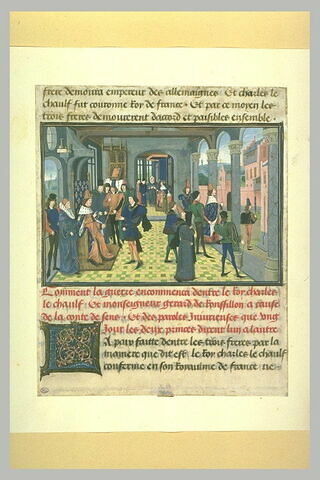 frere demoura empereur des allemaignes · Et charles le
chaulf fut couronne Roy de france · Et par ce moyen les
trois freres demourerent dacord et paisibles ensemble ·
Comment la guerre encommenca dentre le Roy charles
le chaulf · Et monseigneur gerard de Roussillon a cause
de la conte de sens · Et des paroles Iniurieuses que ung
Jour les deux princes dirent lun a lautre
A paix faitte dentre les trois freres par la
maniere que dit est · le Roy charles le chaulf
conferme en son Royaulme de france ne